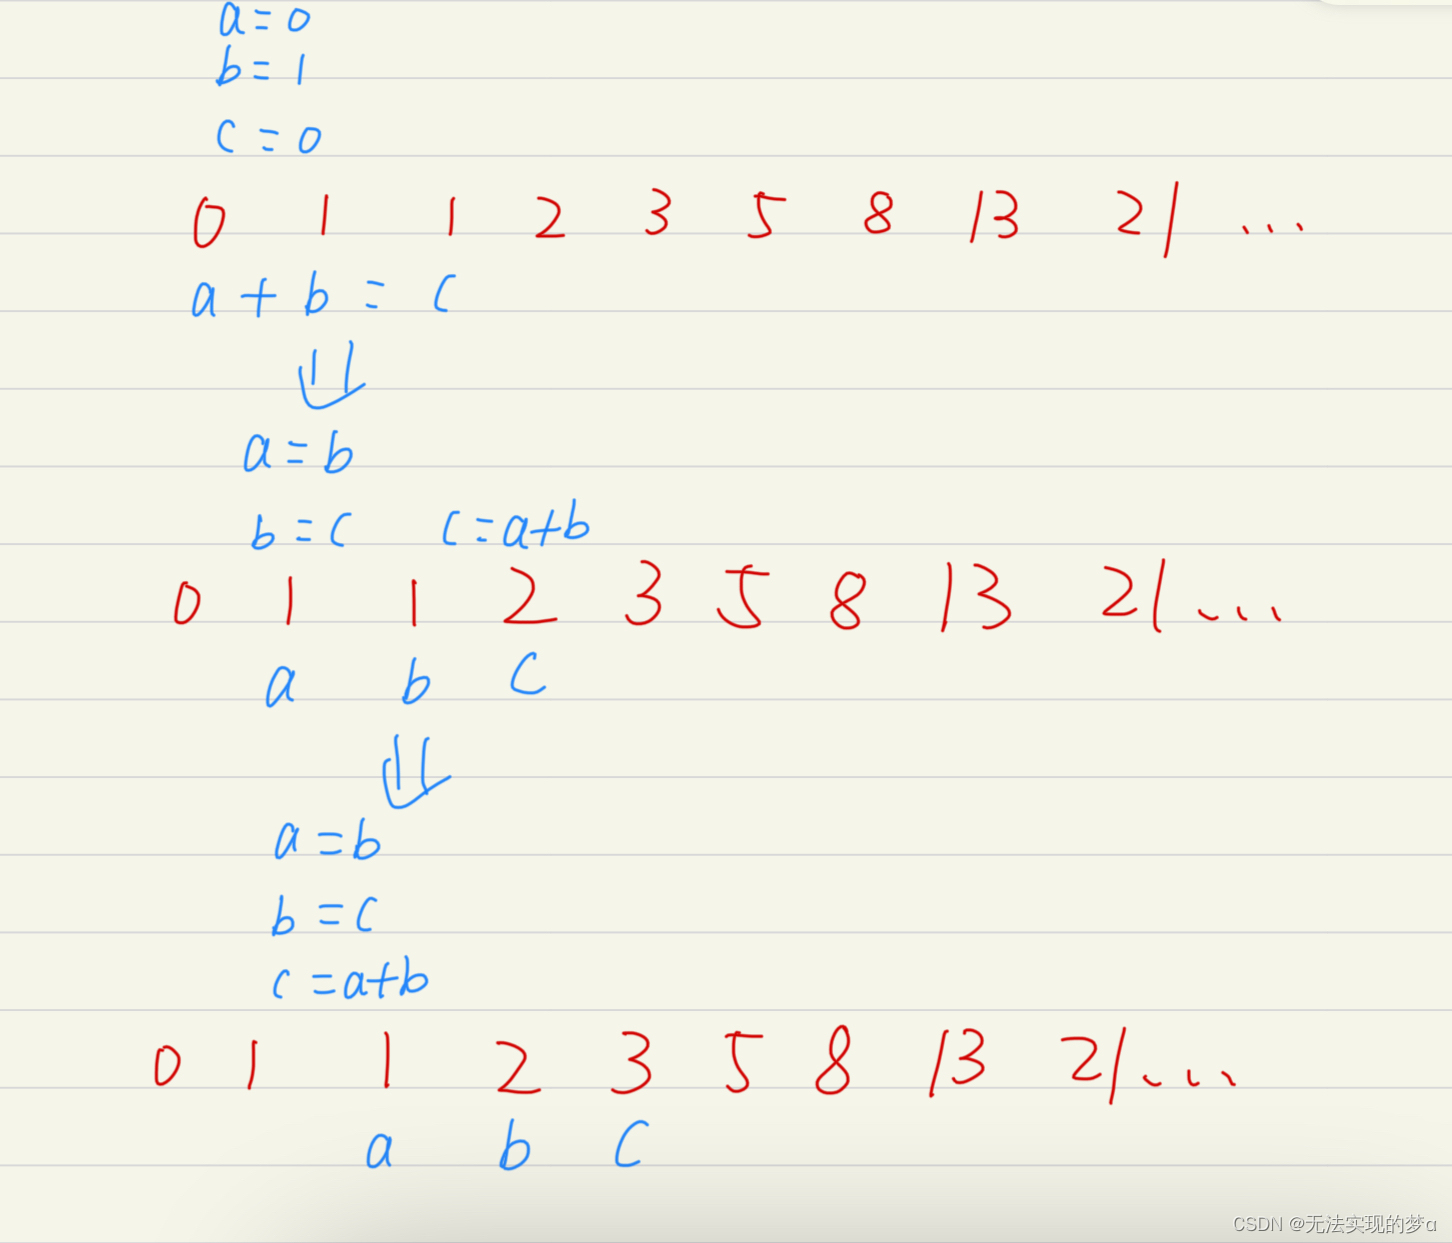 a = 0
b = 1
c = 0
0 1 1 2 3 5 8 13 21 ...
a + b = c
⇓
a = b
b = c c = a+b
0 1 1 2 3 5 8 13 21 ...
a b c
⇓
a = b
b = c
c = a+b
0 1 1 2 3 5 8 13 21 ...
a b c
CSDN @无法实现的梦α